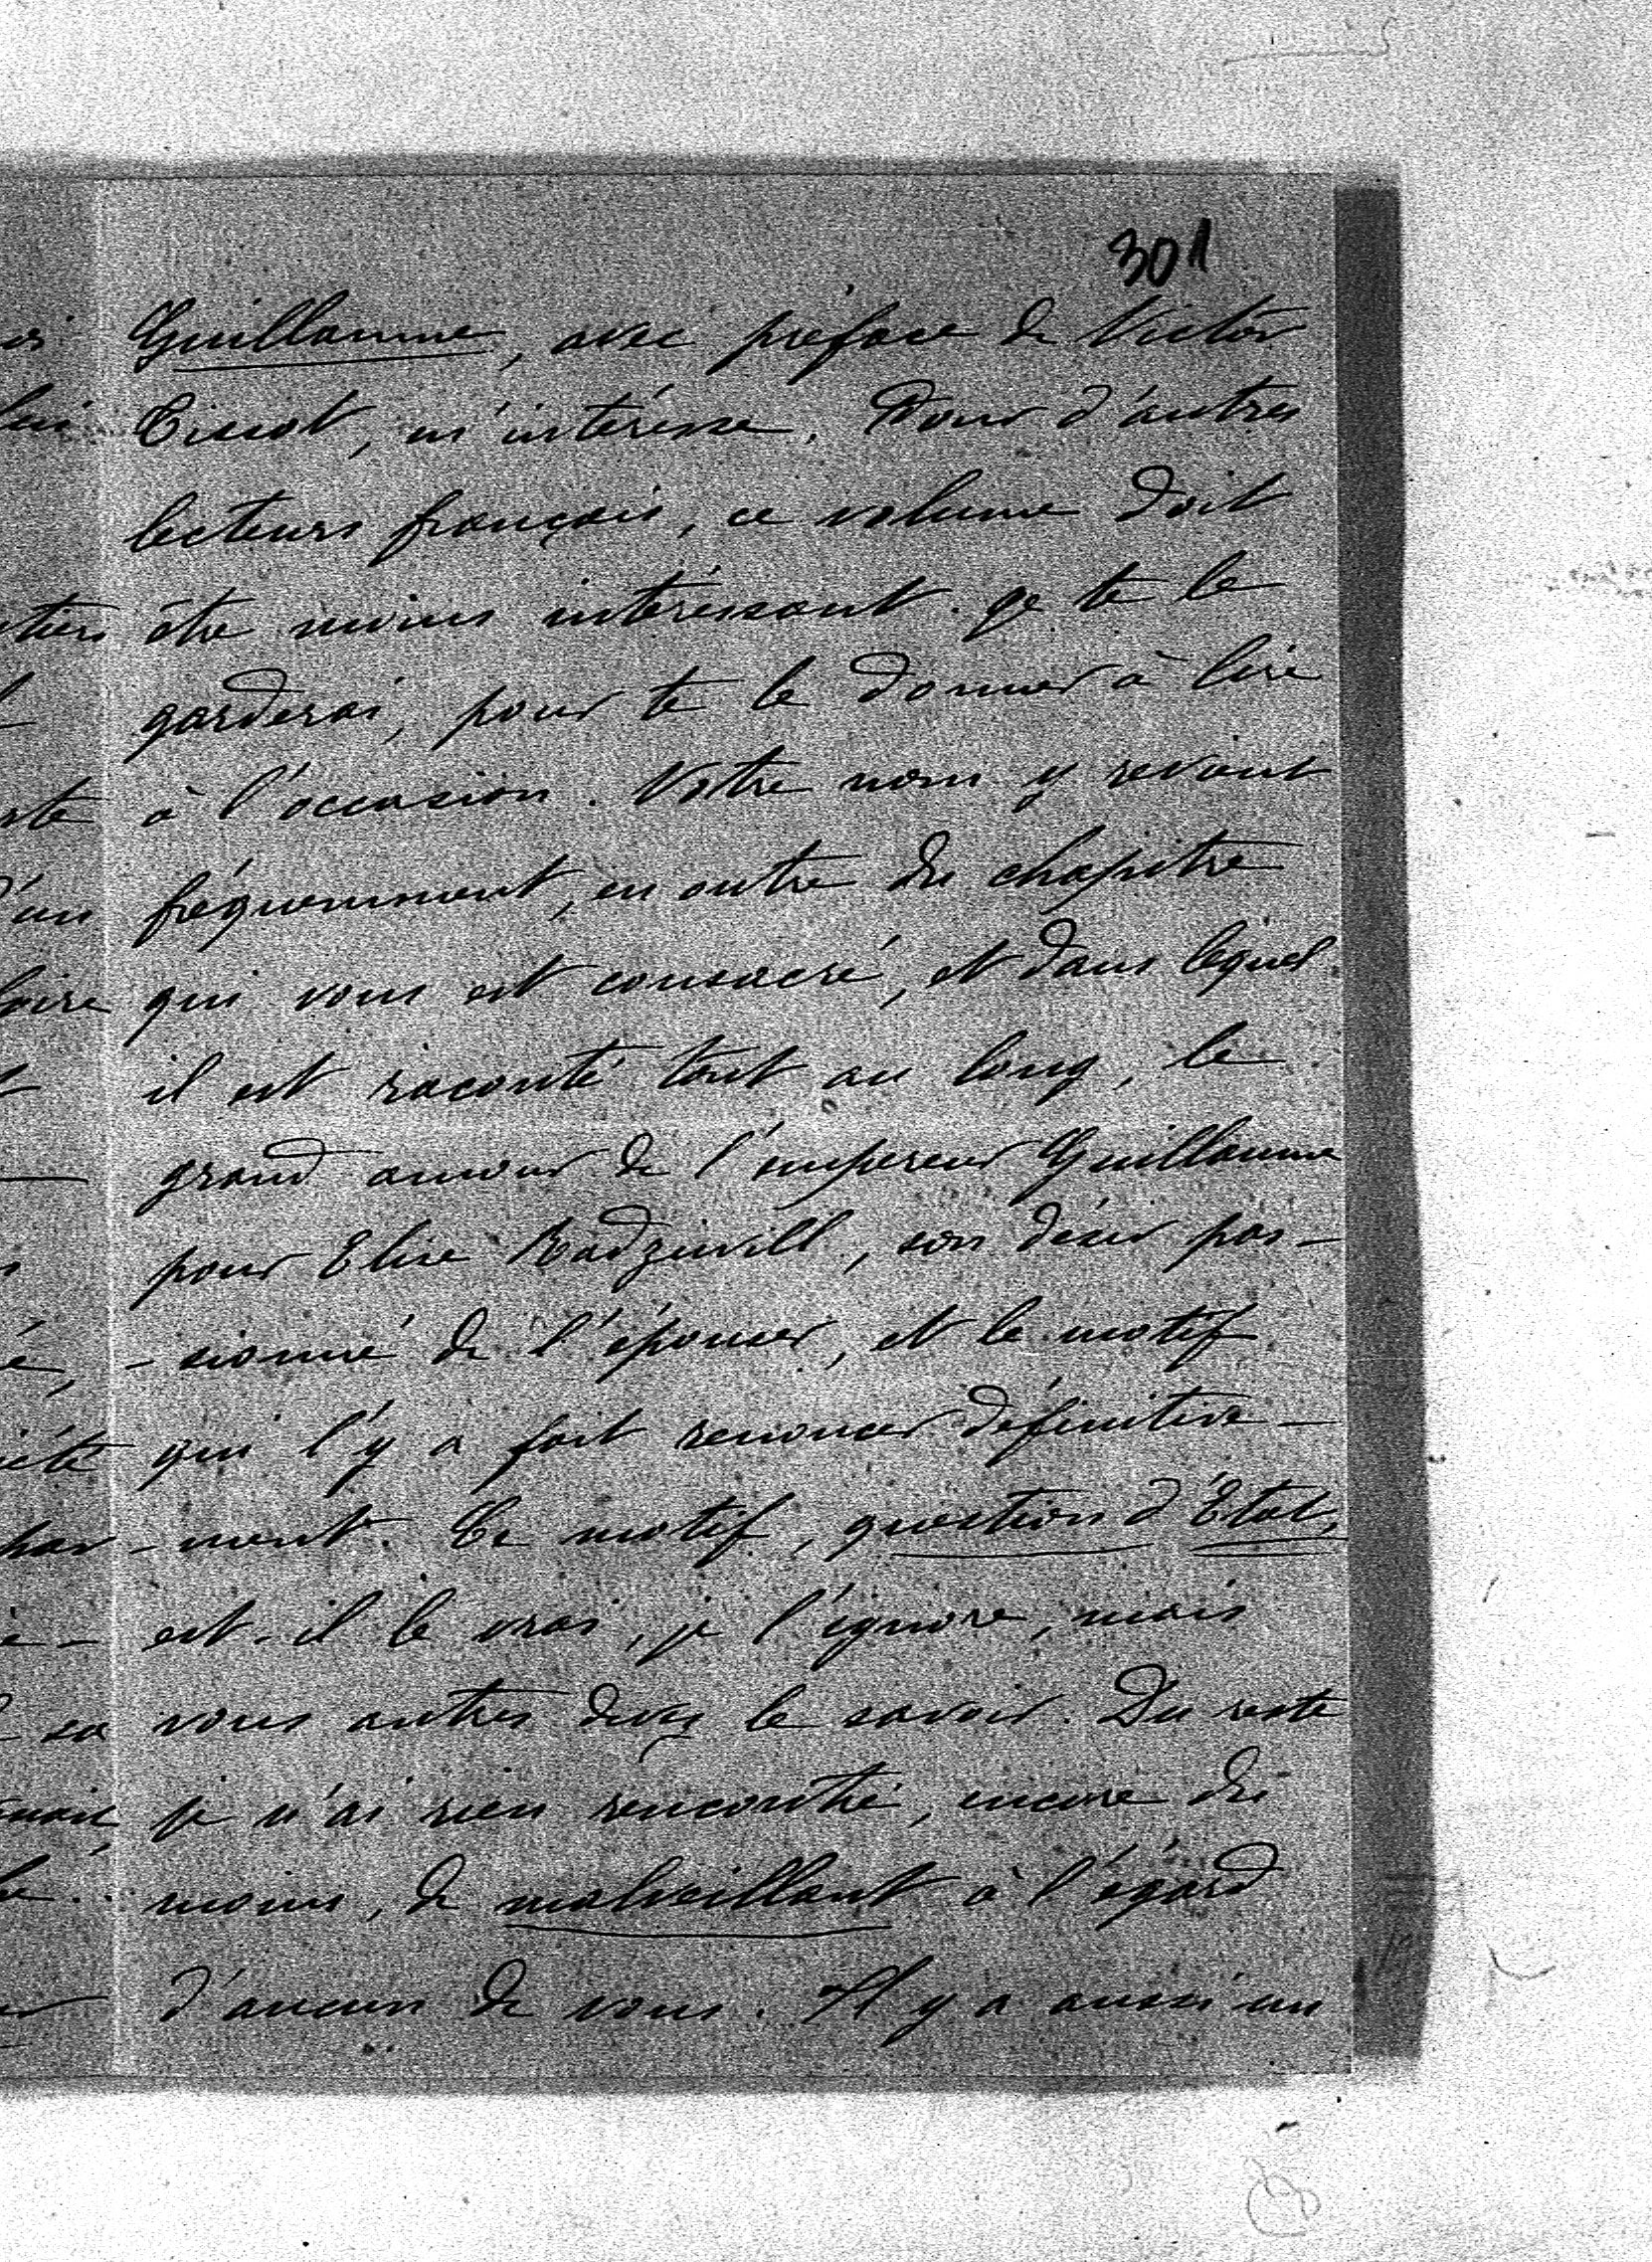 301
Guillaume, avec préface de Victor
Tissot, m'intéresse. Pour d'autres
lecteurs français, ce volume doit
être moins intéressant. Je te le
garderai, pour te le donner à lire
à l'occasion. Votre nom y revient
fréquemment, en outre du chapitre
qui vous est consacré, et dans lequel
il est raconté tout au long, le
grand amour de l'empereur Guillaume
pour Elise Radziwill, son désir pas-
-sionné de l'épouser, et le motif
qui l'y a fait renoncer définitive-
-ment. Ce motif, question d'Etat,
est-il le vrai, je l'ignore, mais
vous autres devez le savoir. Du reste
je n'ai rien rencontré, encore du
moins, de malveillant à l'égard
d'aucun de vous. Il y a aussi un